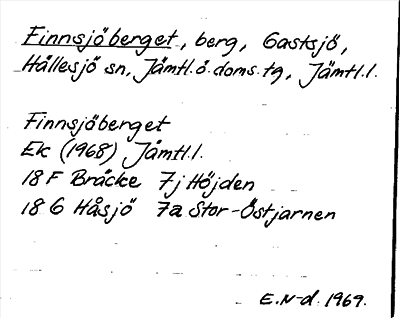 Finnsjöberget, berg, Gastsjö,
Hällesjö sn, Jämtl.ö.doms.tg, Jämtl.l.
Finnsjöberget
Ek (1968) Jämtl.l.
18 F Bräcke 7j Höjden
18 G Håsjö 7a Stor-Östjärnen
E.N-d. 1969.